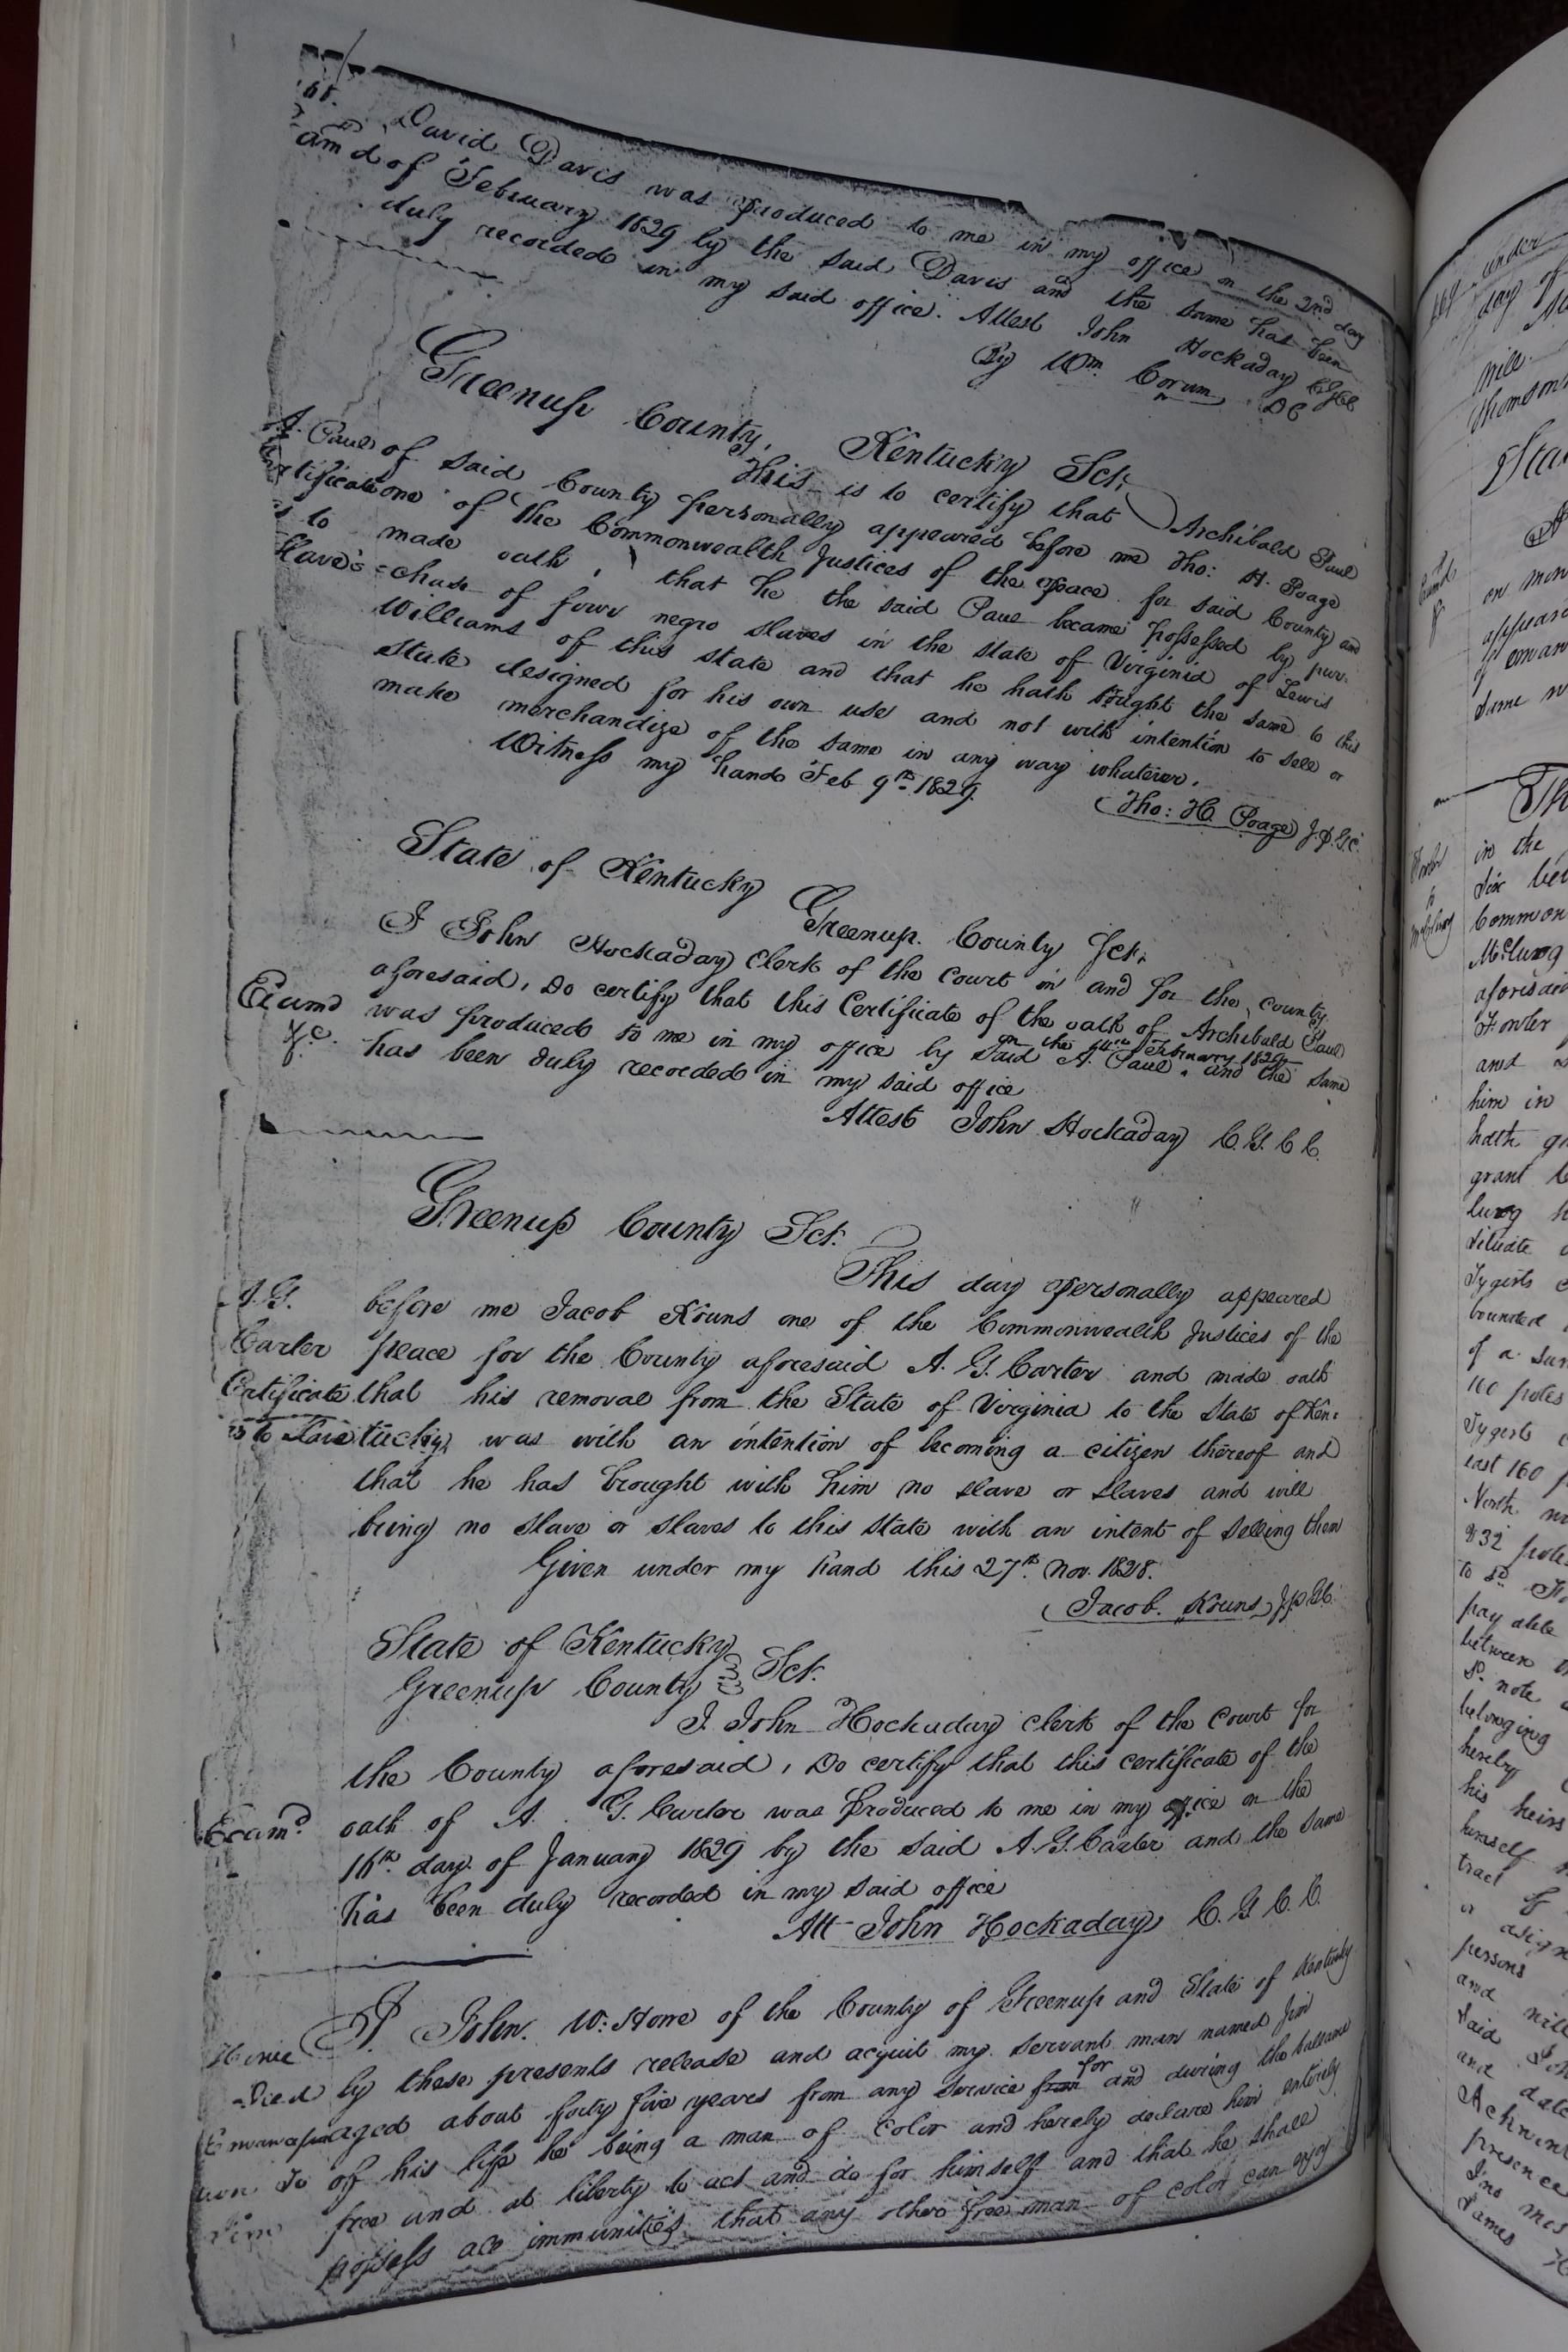 168.
David Davis was produced to me in my office on the 2nd day
of February 1829 by the said Davis and the same has been
duly recorded in my said office. Attest John Hockaday
By Wm. Corum DC
Greenup County, Kentucky Sct.
This is to certify that Archibald Paul
of said County personally appeared before me Tho: H. Poage
one of the Commonwealth Justices of the peace for said County and
made oath, that he the said Paul became possessed by pur-
-chase of four negro slaves in the state of Virginia of Lewis
Williams of this state and that he hath bought the same to this
state designed for his own use and not with intention to sell or
make merchandize of the same in any way whatever.
Witness my hand Feb 9th 1829.
Tho: H. Poage J.P.G.C.
A. Paul
Certificate
as to
Slaves
State of Kentucky Greenup County Sct.
I John Hockaday Clerk of the Court in and for the county
aforesaid, Do certify that this Certificate of the oath of Archibald Paul
on the February 1829
was produced to me in my office by said A. Paul, and the same
has been duly recorded in my said office
Attest John Hockaday C.G.C.C.
Examd
Greenup County Sct.
This day personally appeared
before me Jacob Kouns one of the Commonwealth Justices of the
peace for the County aforesaid A. G. Carter and made oath
that his removal from the State of Virginia to the State of Ken:
tucky, was with an intention of becoming a citizen thereof and
that he has brought with him no slave or slaves and will
bring no slave or slaves to this state with an intent of selling them
Given under my hand this 27th. Nov. 1828.
Jacob. Kouns J.P.G.C.
A.G.
Carter
Certificate
as to Slaves
State of Kentucky
Greenup County Sct.
I. John Hockaday clerk of the Court for
the County aforesaid, Do certify that this certificate of the
oath of A. G. Carter was produced to me in my office on the
16th. day of January 1829 by the said A. G. Carter and the same
has been duly recorded in my said office
Att John Hockaday C.G.C.C.
Examd.
I John. W: Howe of the County of Greenup and State of Kentucky
by these presents release and acquit my servant man named Jim
for
aged about forty five years from any service from and during the ballance
of his life he being a man of Color and hereby declare him entirely
free and at liberty to act and do for himself and that he shall
possess all immunities that any other free man of color can enjoy
Howe
Deed
Emancipa
tion to
Jim
169
under
day of
mill.
Thomson
on mon
appeare
of eman
same w
Th
in the
Six
Common
McClung
aforesaid
Fowler
and
him in
hath
grant
lung
situate
Tygerts
bounded
of a
160 poles
Tygerts
east 160
North
232 pole
to sd.
pay able
between
sd. note
belonging
hereby
his heirs
himself
tract
or asign
persons
and will
said
and date
presence
James